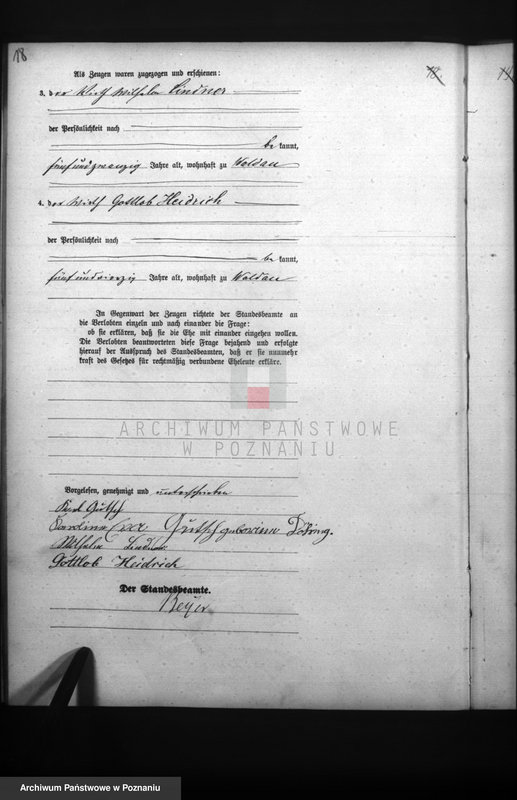 18
Als Zeugen waren zugezogen und erschienen:
3. der Wirth Wilhelm Lindner
der Persönlichkeit nach
be kannt,
fünfundzwanzig Jahre alt, wohnhaft zu Waldau
4. der Wirth Gottlob Heidrich
der Persönlichkeit nach
be kannt,
fünfundvierzig Jahre alt, wohnhaft zu Waldau
In Gegenwart der Zeugen richtete der Standesbeamte an
die Verlobten einzeln und nach einander die Frage:
ob sie erklären, daß sie die Ehe mit einander eingehen wollen.
Die Verlobten beantworteten diese Frage bejahend und erfolgte
hierauf der Ausspruch des Standesbeamten, daß er sie nunmehr
kraft des Gesetzes für rechtmäßig verbundene Eheleute erkläre.
ARCHIWUM PAŃSTWOWE
W POZNANIU
Vorgelesen, genehmigt und unterschrieben
Karl Gutsch
Gutsch geborene
Wilhelm Lindner
Gottlob Heidrich
Der Standesbeamte.
Beyer
Archiwum Państwowe w Poznaniu